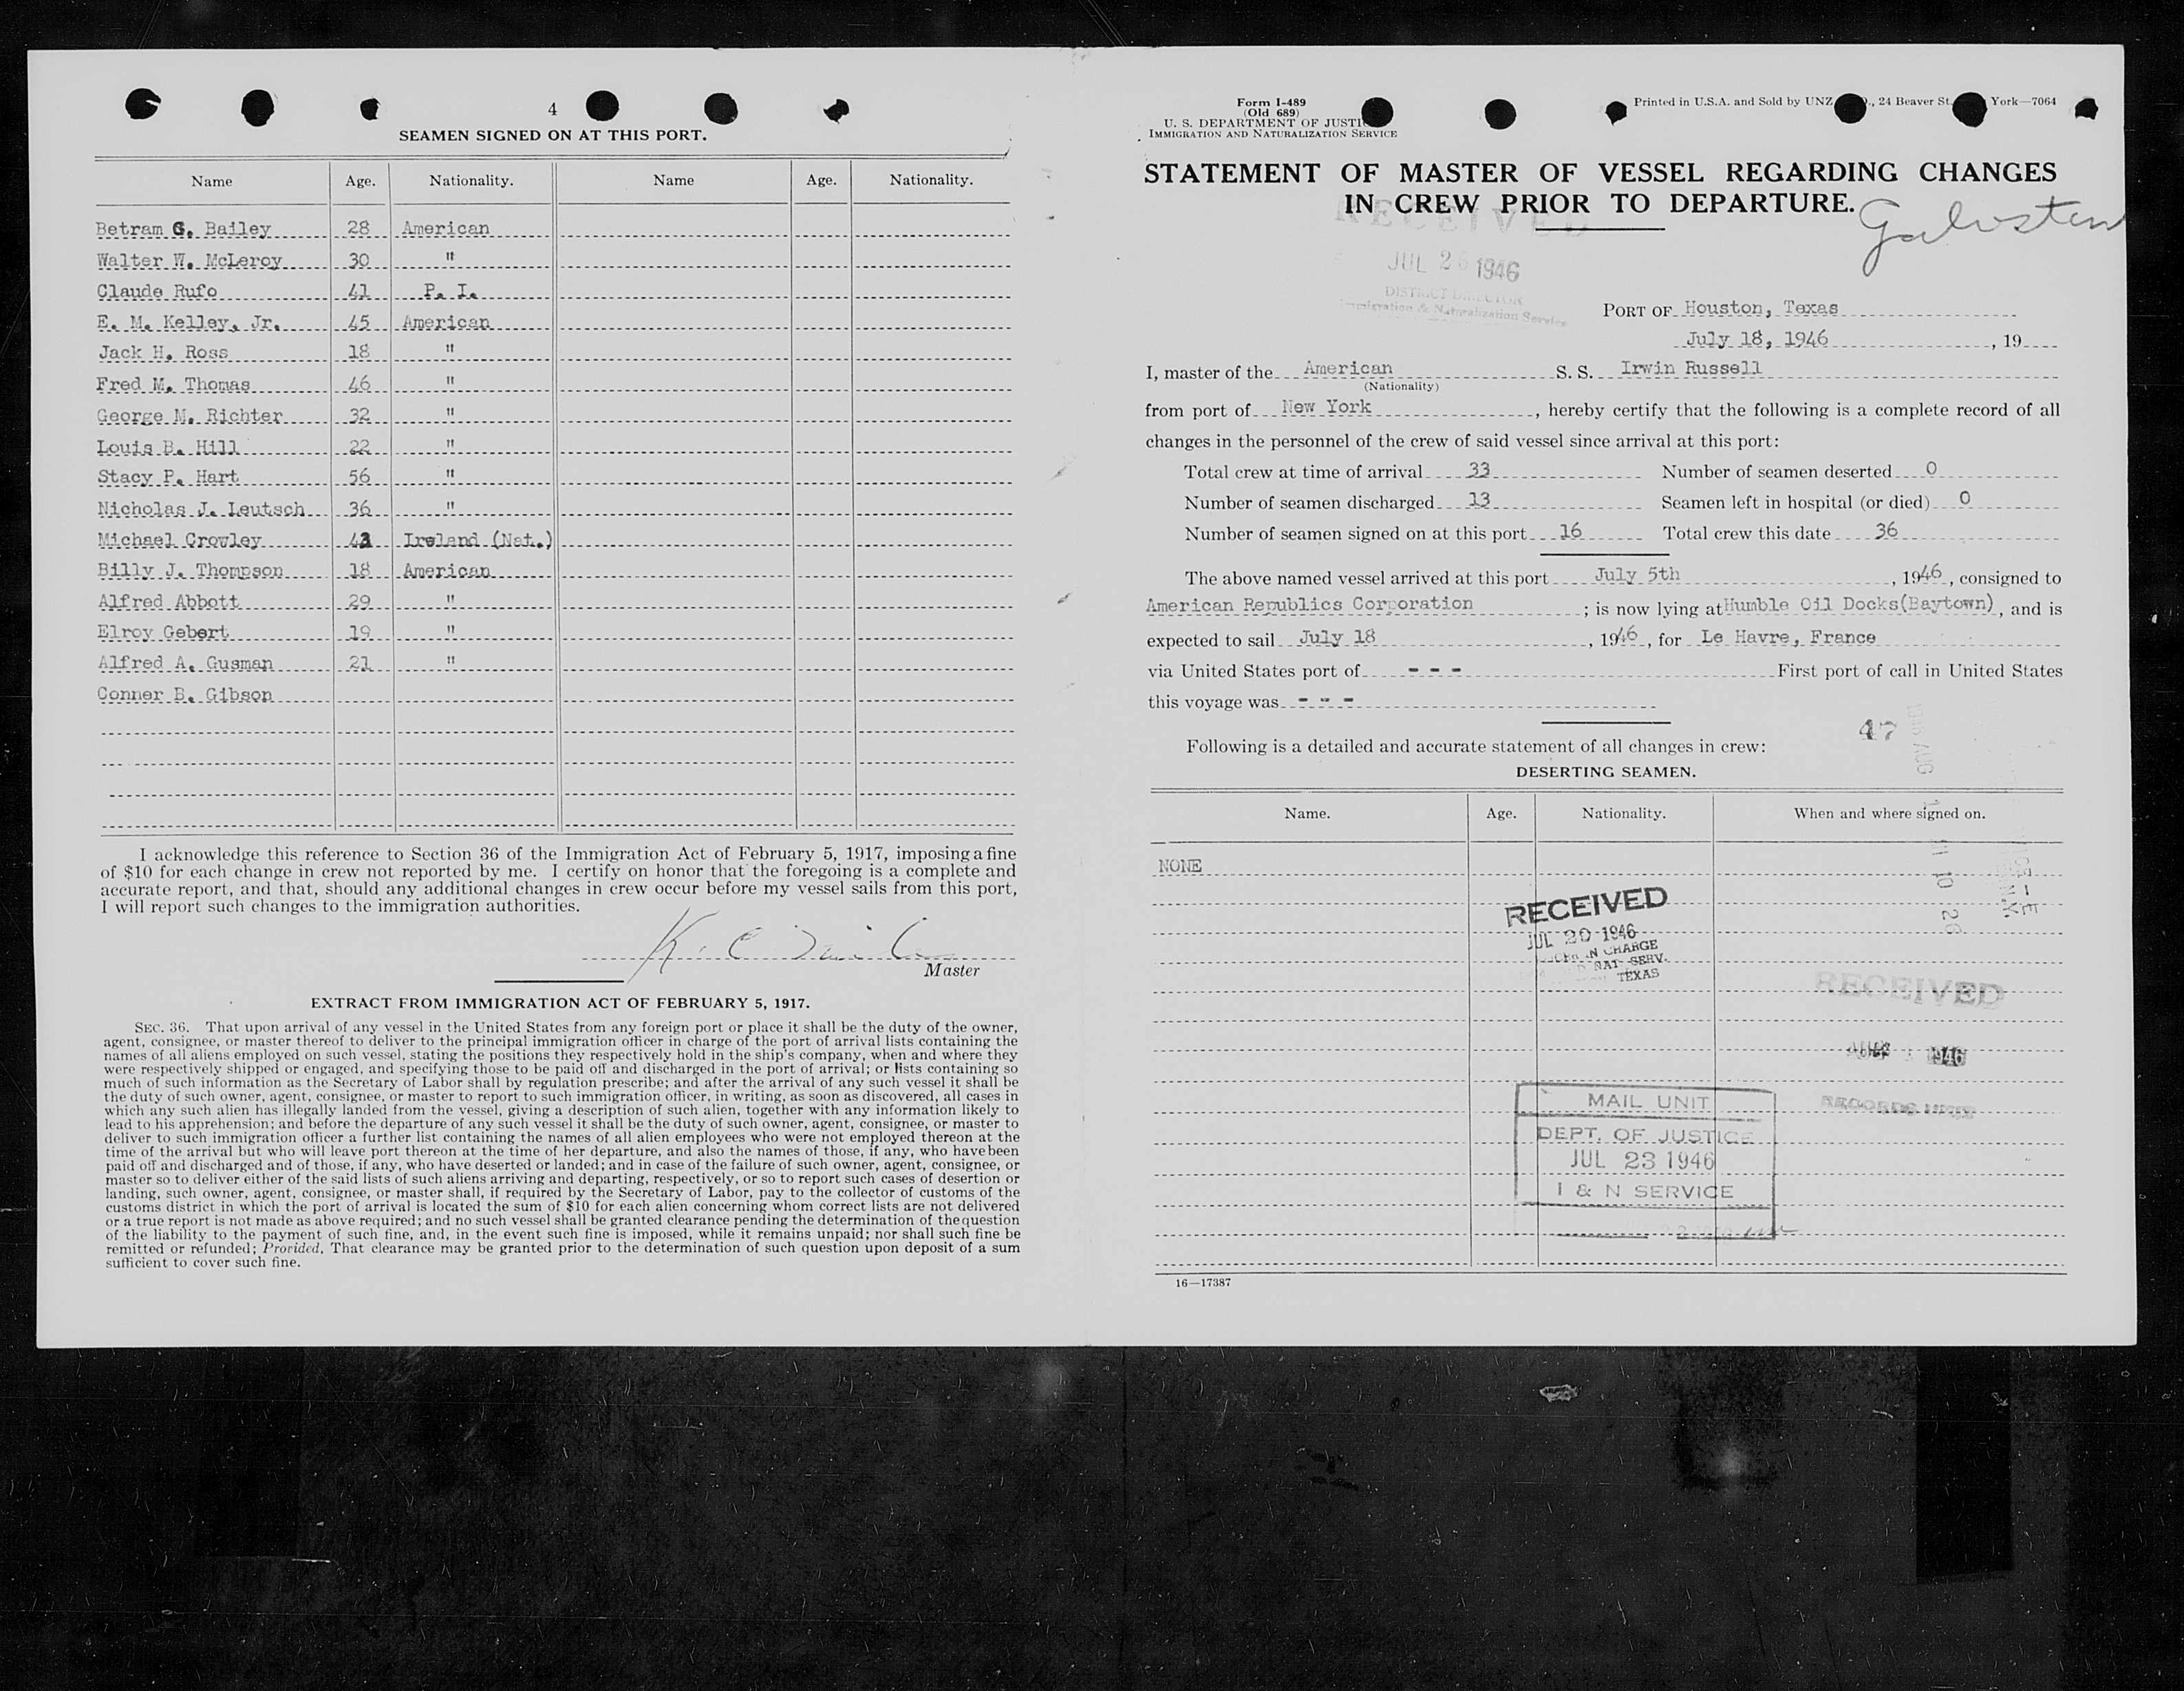 4
SEAMEN SIGNED ON AT THIS PORT.
Name Age. Nationality. Name Age. Nationality.
Betram G. Bailey 28 American
Walter W. McLeroy 30 "
Claude Rufo 41 P. I.
E. M. Kelley, Jr. 45 American
Jack H. Ross 18 "
Fred M. Thomas 46 "
George M. Richter 32 "
Louis B. Hill 22 "
Stacy P. Hart 56 "
Nicholas J. Leutsch 36 "
Michael Crowley Ireland (Nat.)
Billy J. Thompson 18 American
Alfred Abbott 29 "
Elroy Gebert 19 "
Alfred A. Gusman 21 "
Conner B. Gibson
I acknowledge this reference to Section 36 of the Immigration Act of February 5, 1917, imposing a fine
of $10 for each change in crew not reported by me. I certify on honor that the foregoing is a complete and
accurate report, and that, should any additional changes in crew occur before my vessel sails from this port,
I will report such changes to the immigration authorities.
K. C.
Master
EXTRACT FROM IMMIGRATION ACT OF FEBRUARY 5, 1917.
SEC. 36. That upon arrival of any vessel in the United States from any foreign port or place it shall be the duty of the owner,
agent, consignee, or master thereof to deliver to the principal immigration officer in charge of the port of arrival lists containing the
names of all aliens employed on such vessel, stating the positions they respectively hold in the ship's company, when and where they
were respectively shipped or engaged, and specifying those to be paid off and discharged in the port of arrival; or lists containing so
much of such information as the Secretary of Labor shall by regulation prescribe; and after the arrival of any such vessel it shall be
the duty of such owner, agent, consignee, or master to report to such immigration officer, in writing, as soon as discovered, all cases in
which any such alien has illegally landed from the vessel, giving a description of such alien, together with any information likely to
lead to his apprehension; and before the departure of any such vessel it shall be the duty of such owner, agent, consignee, or master to
deliver to such immigration officer a further list containing the names of all alien employees who were not employed thereon at the
time of the arrival but who will leave port thereon at the time of her departure, and also the names of those, if any, who have been
paid off and discharged and of those, if any, who have deserted or landed; and in case of the failure of such owner, agent, consignee, or
master so to deliver either of the said lists of such aliens arriving and departing, respectively, or so to report such cases of desertion or
landing, such owner, agent, consignee, or master shall, if required by the Secretary of Labor, pay to the collector of customs of the
customs district in which the port of arrival is located the sum of $10 for each alien concerning whom correct lists are not delivered
or a true report is not made as above required; and no such vessel shall be granted clearance pending the determination of the question
of the liability to the payment of such fine, and, in the event such fine is imposed, while it remains unpaid; nor shall such fine be
remitted or refunded; Provided, That clearance may be granted prior to the determination of such question upon deposit of a sum
sufficient to cover such fine.
Form I-489
(Old 689)
U. S. DEPARTMENT OF JUSTI
IMMIGRATION AND NATURALIZATION SERVICE
Printed in U.S.A. and Sold by UNZ ., 24 Beaver St. York—7064
STATEMENT OF MASTER OF VESSEL REGARDING CHANGES
IN CREW PRIOR TO DEPARTURE.
Galvston
RECEIVED
JUL 26 1946
DISTRICT DIRECTOR
Immigration & Naturalization Service
PORT OF Houston, Texas
July 18, 1946, 19
I, master of the American S. S. Irwin Russell
(Nationality)
from port of New York, hereby certify that the following is a complete record of all
changes in the personnel of the crew of said vessel since arrival at this port:
Total crew at time of arrival 33 Number of seamen deserted 0
Number of seamen discharged 13 Seamen left in hospital (or died) 0
Number of seamen signed on at this port 16 Total crew this date 36
The above named vessel arrived at this port July 5th, 1946, consigned to
American Republics Corporation; is now lying at Humble Oil Docks(Baytown), and is
expected to sail July 18, 1946, for Le Havre, France
via United States port of - - - First port of call in United States
this voyage was - - -
47
Following is a detailed and accurate statement of all changes in crew:
DESERTING SEAMEN.
Name. Age. Nationality. When and where signed on.
NONE
RECEIVED
JUL 20 1946
IN CHARGE
NAT. SERV.
TEXAS
RECEIVED
1946
RECORDS UNIT
MAIL UNIT
DEPT. OF JUSTICE
JUL 23 1946
I & N SERVICE
16—17387